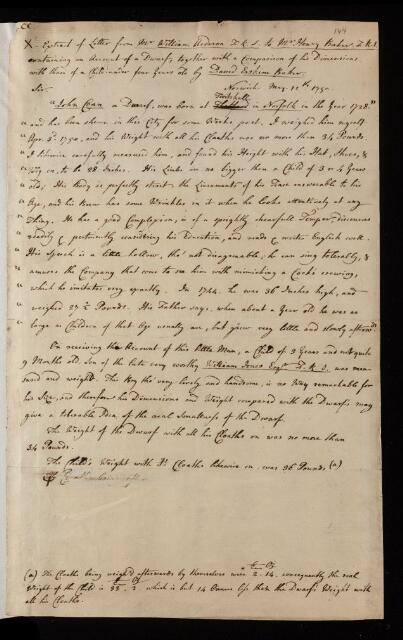 144
X. Extract of Letter from Mr William Arderon F.R.S. to Mr Henry Baker, F.R.S.
containing an Account of a Dwarf; together with a Comparison of his Dimensions
with those of a Child under four Years old: by David Erskine Baker.
Sir. Norwich May. 12th 1750.
"John Coan a Dwarf, was born at Twitshall in Norfolk in the Year 1728."
" and has been shewn in this City for some Weeks past. I weighed him myself
" Apr. 3d 1750, and his Weight with all his Cloaths was no more than 34 Pounds.
" I likewise carefully measured him, and found his Height with his Hat, Shoes, &
" Wig on, to be 38 Inches. His Limbs are no bigger than a Child of 3 or 4 Years
" old; His Body is perfectly strait: the Lineaments of his Face answerable to his
" Age, and his Brow has some Wrinkles in it when he looks attentively at any
" Thing. He has a good Complexion, is of a sprightly chearfull Temper, discourses
" readily & pertinently considering his Education, and reads & writes English well.
" His Speech is a little hollow, tho' not disagreeable; he can sing tolerably, &
" amuses the Company that come to see him with mimicking a Cocks crowing,
" which he imitates very exactly. In 1744. he was 36 Inches high, and
" weighed 27 ½ Pounds. His Father says, when about a Year old he was as
" large as Children of that Age usually are, but grew very little and slowly afterwds
On receiving this Account of this little Man, a Child of 3 Years and not quite
9 Months old, Son of the late very worthy William Jones Esqr F.R.S. was mea-
sured and weighd. This Boy tho very lively and handsome, is no Way remarkable for
his Size, and therefore his Dimensions and Weight compared with the Dwarfs, may
give a tolerable Idea of the real Smallness of the Dwarf.
The Weight of the Dwarf with all his Cloaths on was no more than
34 Pounds.
The Child's Weight with its Cloaths likewise on was 36 Pounds (a)
(a) The Cloaths being weigh'd afterwards by themselves were 2 - 14. consequently the real
Weight of the Child is 33 - 2 which is but 14 Ounces less than the Dwarfs Weight with
all his Cloaths.